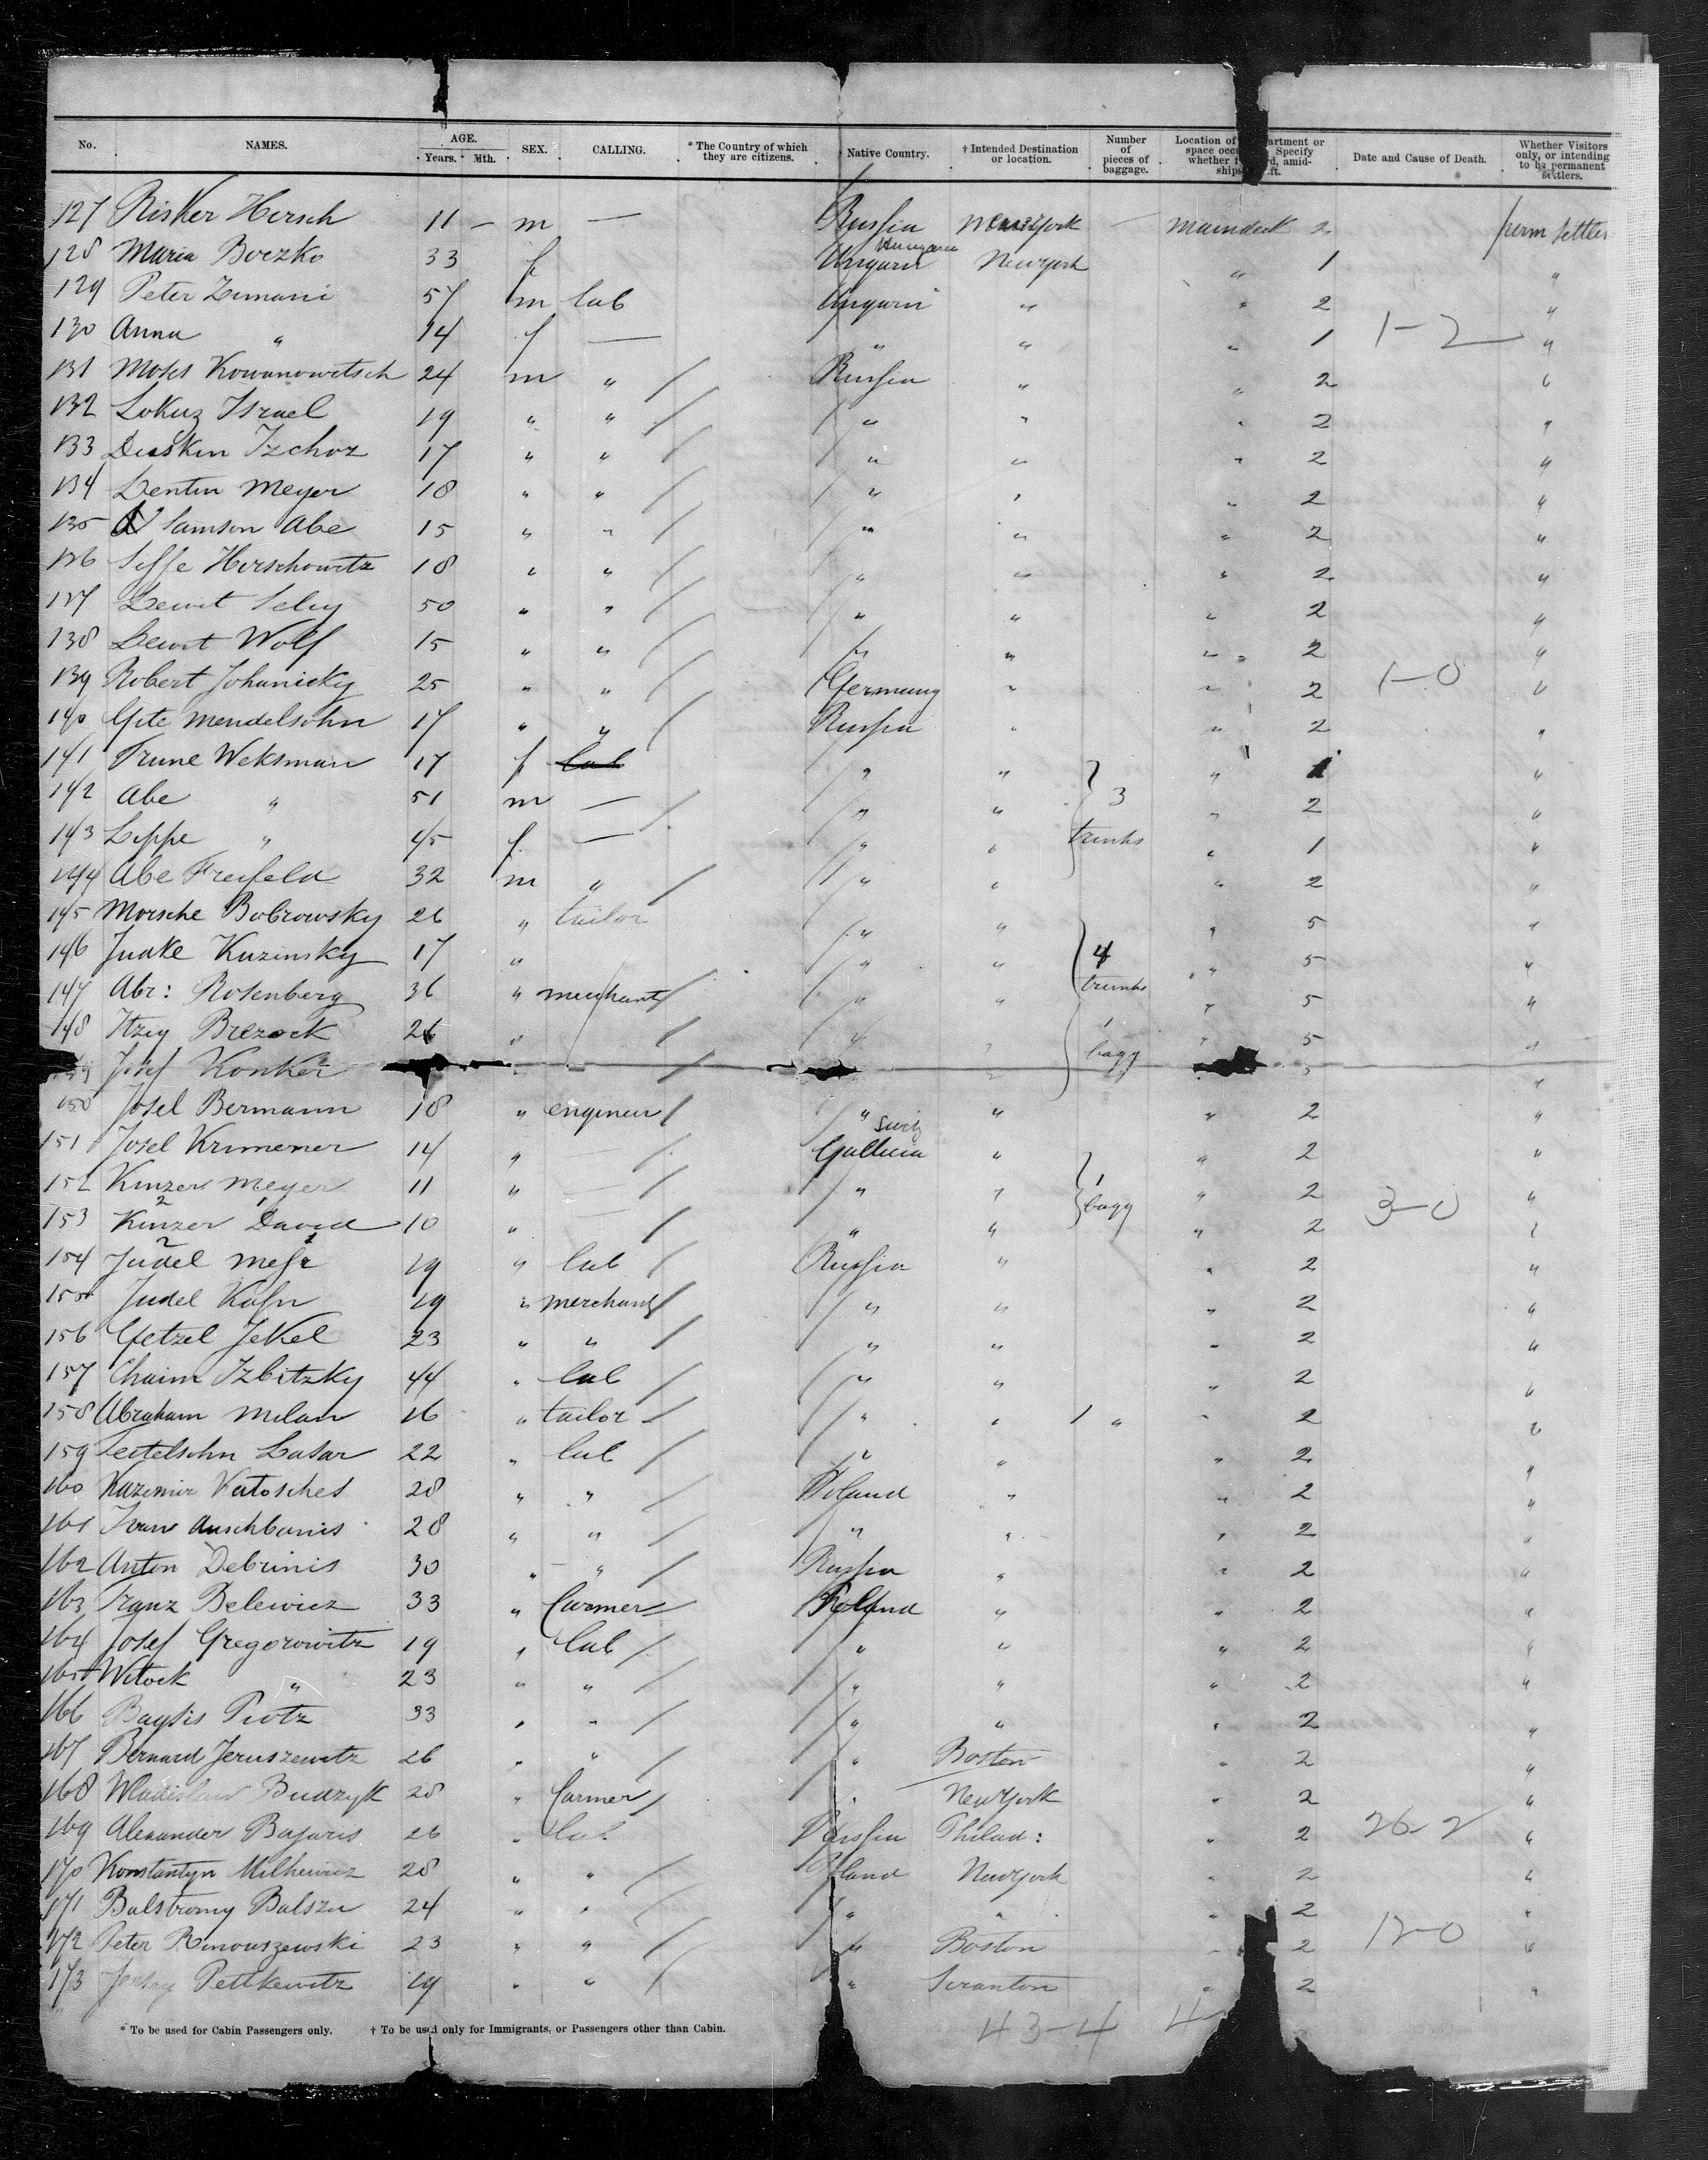 No. NAMES. AGE. Years. Mth. SEX. CALLING. * The Country of which they are citizens. Native Country. † Intended Destination or location. Number of pieces of baggage. Location of space Specify whether amidships Date and Cause of Death. Whether Visitors only, or intending to be permanent settlers.
127 Risker Hersch 11 – m — Russia New York — maindeck 2 perm settler
128 Maria Boczko 33 f Ungarn Hungaria New York " 1 "
129 Peter 57 m lab Ungarn " " 2 "
130 Anna " 14 f — " " " 1 1-2 "
131 Moses Kowanowitsch 24 m " / Russia " " 2 "
132 Lokuz Israel 19 " " / " " " 2 "
133 Duskin 17 " " / " " " 2 "
134 Lentin Meyer 18 " " / " " " 2 "
135 Samson Abe 15 " " / " " " 2 "
136 Herschowitz 18 " " / " " " 2 "
137 50 " " / " " " 2 "
138 Wolf 15 " " / " " " 2 "
139 Robert Johanicky 25 " " / Germany " " 2 1-0 "
140 Mendelsohn 17 " " / Russia " " 2 "
141 Weksman 17 f lab " " " 1 "
142 Abe " 51 m — / " " 3 " 2 "
143 Lippe " 45 f — " " trunks " 1 "
144 Abe Freifeld 32 m " / " " " 2 "
145 Morsche Bobrowsky 26 " tailor " " " 5 "
146 Judke Kuzinsky 17 " " " 4 " 5 "
147 Abr: Rosenberg 36 " merchant / " " trunks " 5 "
148 Itzig 26 " / " " 1 bagg " 5 "
Josef Konker
150 Josel Bermann 18 " engineur / " " " 2 "
151 Josel Krimemer 14 " — / Gallicia " " 2 "
152 Kinzer Meyer 11 " — / " " 1 " 2 "
153 Kinzer David 10 " — / " " bagg " 2 3-0 "
154 Judel 19 " lab / Russia " " 2 "
155 Judel 19 " merchant / " " " 2 "
156 Getzel Jekel 23 " " / " " " 2 "
157 Chaim Izbitzky 44 " lab / " " " 2 "
158 Abraham Milan 16 " tailor / " " 1 " " 2 "
159 Lasar 22 " lab / " " " 2 "
160 Kazimir 28 " " / Poland " " 2 "
161 28 " " / " " " 2 "
162 Anton Debrinis 30 " " / Russia " " 2 "
163 Franz Belewicz 33 " farmer / Poland " " 2 "
164 Josef Gregorowitz 19 " lab / " " " 2 "
165 Witock " 23 " " / " " " 2 "
166 33 " " / " " " 2 "
167 Bernard Jeruszewitz 26 " " / " Boston " 2 "
168 Wladislaw Budzyk 28 " farmer / " New York " 2 "
169 Alexander 26 " lab. Russia Philad: " 2 26-2 "
170 Konstantyn Milkewicz 28 " " / Poland New York " 2 "
171 Balstromy 24 " " / " " " 2 "
172 Peter 23 " " / " Boston " 2 12-0 "
173 Pettkewitz 19 " " / " Scranton " 2 "
* To be used for Cabin Passengers only. † To be used only for Immigrants, or Passengers other than Cabin.
43-4 4